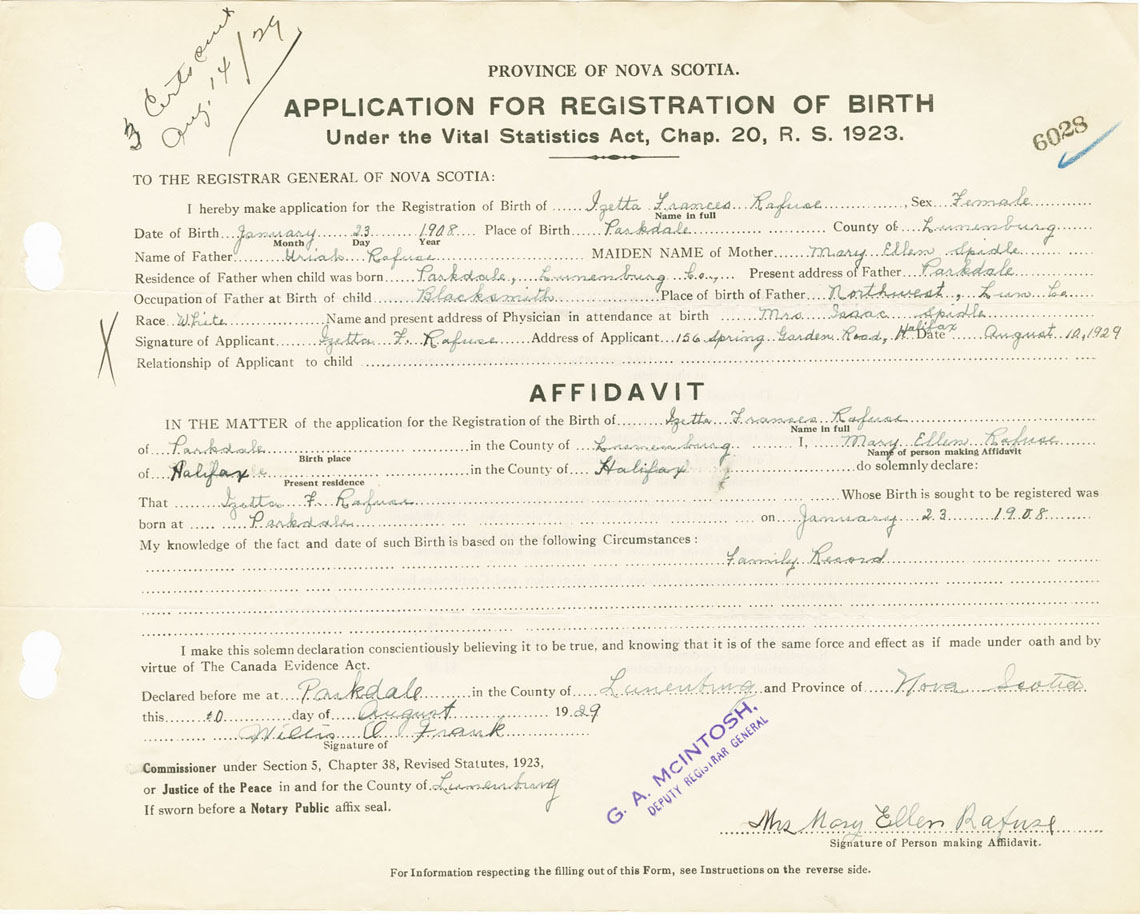 3 Certs sent
Aug. 14/29
PROVINCE OF NOVA SCOTIA.
APPLICATION FOR REGISTRATION OF BIRTH
Under the Vital Statistics Act, Chap. 20, R. S. 1923.
6028
TO THE REGISTRAR GENERAL OF NOVA SCOTIA:
I hereby make application for the Registration of Birth of Izetta Frances Rafuse, Sex Female
Name in full
Date of Birth January 23 1908 Place of Birth Parkdale County of Lunenburg
Month Day Year
Name of Father Uriah Rafuse MAIDEN NAME of Mother Mary Ellen Spidle
Residence of Father when child was born Parkdale, Lunenburg Co., Present address of Father Parkdale
Occupation of Father at Birth of child Blacksmith Place of birth of Father Northwest, Lun Co
Race White Name and present address of Physician in attendance at birth Mrs Isaac Spidle
Signature of Applicant Izetta F. Rafuse Address of Applicant 156 Spring Garden Road, Halifax Date August 10, 1929
X Relationship of Applicant to child
AFFIDAVIT
IN THE MATTER of the application for the Registration of the Birth of Izetta Frances Rafuse
Name in full
of Parkdale in the County of Lunenburg I, Mary Ellen Rafuse
Birth place Name of person making Affidavit
of Halifax in the County of Halifax do solemnly declare:
Present residence
That Izetta F. Rafuse Whose Birth is sought to be registered was
born at Parkdale on January 23 1908
My knowledge of the fact and date of such Birth is based on the following Circumstances:
Family Record
I make this solemn declaration conscientiously believing it to be true, and knowing that it is of the same force and effect as if made under oath and by
virtue of The Canada Evidence Act.
Declared before me at Parkdale in the County of Lunenburg and Province of Nova Scotia
this 10 day of August 1929
Willis O. Frank
Signature of
Commissioner under Section 5, Chapter 38, Revised Statutes, 1923,
or Justice of the Peace in and for the County of Lunenburg
If sworn before a Notary Public affix seal.
G. A. McINTOSH,
DEPUTY REGISTRAR GENERAL
Mrs Mary Ellen Rafuse
Signature of Person making Affidavit.
For Information respecting the filling out of this Form, see Instructions on the reverse side.